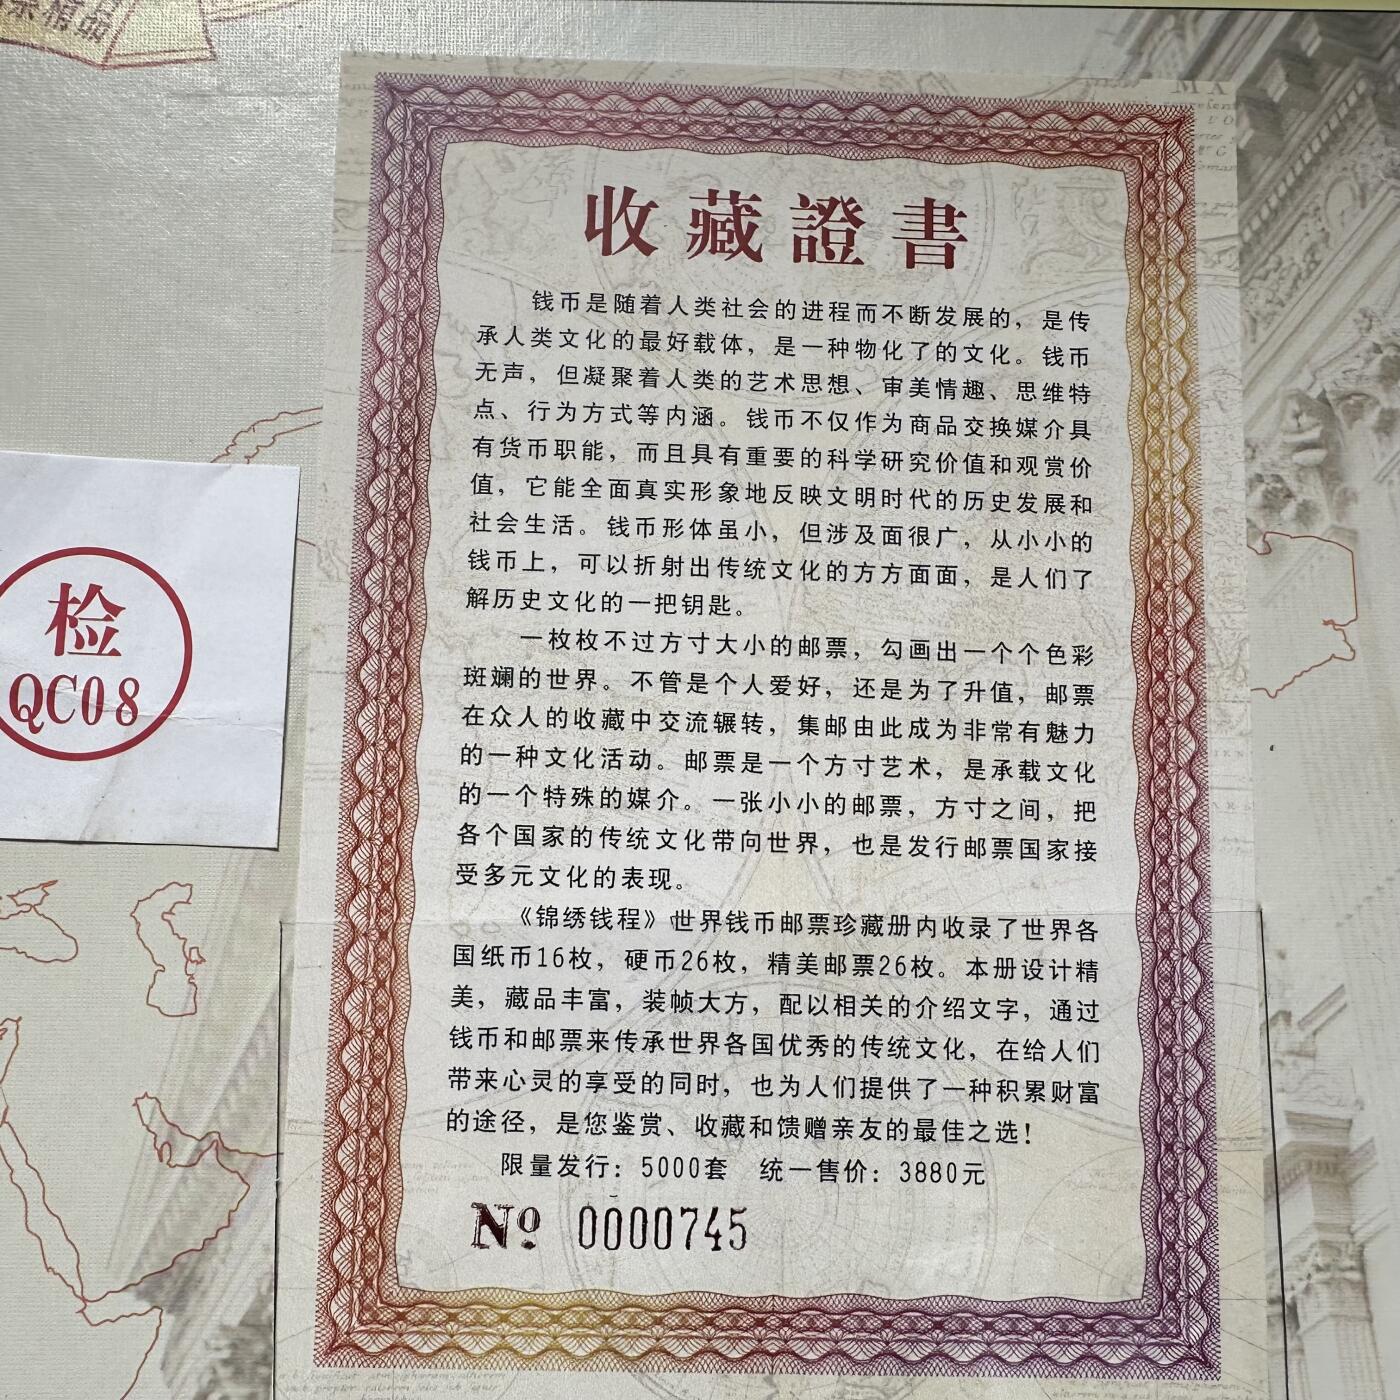 收藏證書
钱币是随着人类社会的进程而不断发展的，是传
承人类文化的最好载体，是一种物化了的文化。钱币
无声，但凝聚着人类的艺术思想、审美情趣、思维特
点、行为方式等内涵。钱币不仅作为商品交换媒介具
有货币职能，而且具有重要的科学研究价值和观赏价
值，它能全面真实形象地反映文明时代的历史发展和
社会生活。钱币形体虽小，但涉及面很广，从小小的
钱币上，可以折射出传统文化的方方面面，是人们了
解历史文化的一把钥匙。
一枚枚不过方寸大小的邮票，勾画出一个个色彩
斑斓的世界。不管是个人爱好，还是为了升值，邮票
在众人的收藏中交流辗转，集邮由此成为非常有魅力
的一种文化活动。邮票是一个方寸艺术，是承载文化
的一个特殊的媒介。一张小小的邮票，方寸之间，把
各个国家的传统文化带向世界，也是发行邮票国家接
受多元文化的表现。
《锦绣钱程》世界钱币邮票珍藏册内收录了世界各
国纸币16枚，硬币26枚，精美邮票26枚。本册设计精
美，藏品丰富，装帧大方，配以相关的介绍文字，通过
钱币和邮票来传承世界各国优秀的传统文化，在给人们
带来心灵的享受的同时，也为人们提供了一种积累财富
的途径，是您鉴赏、收藏和馈赠亲友的最佳之选！
限量发行：5000套 统一售价：3880元
Nº 0000745
检
QC08
精品